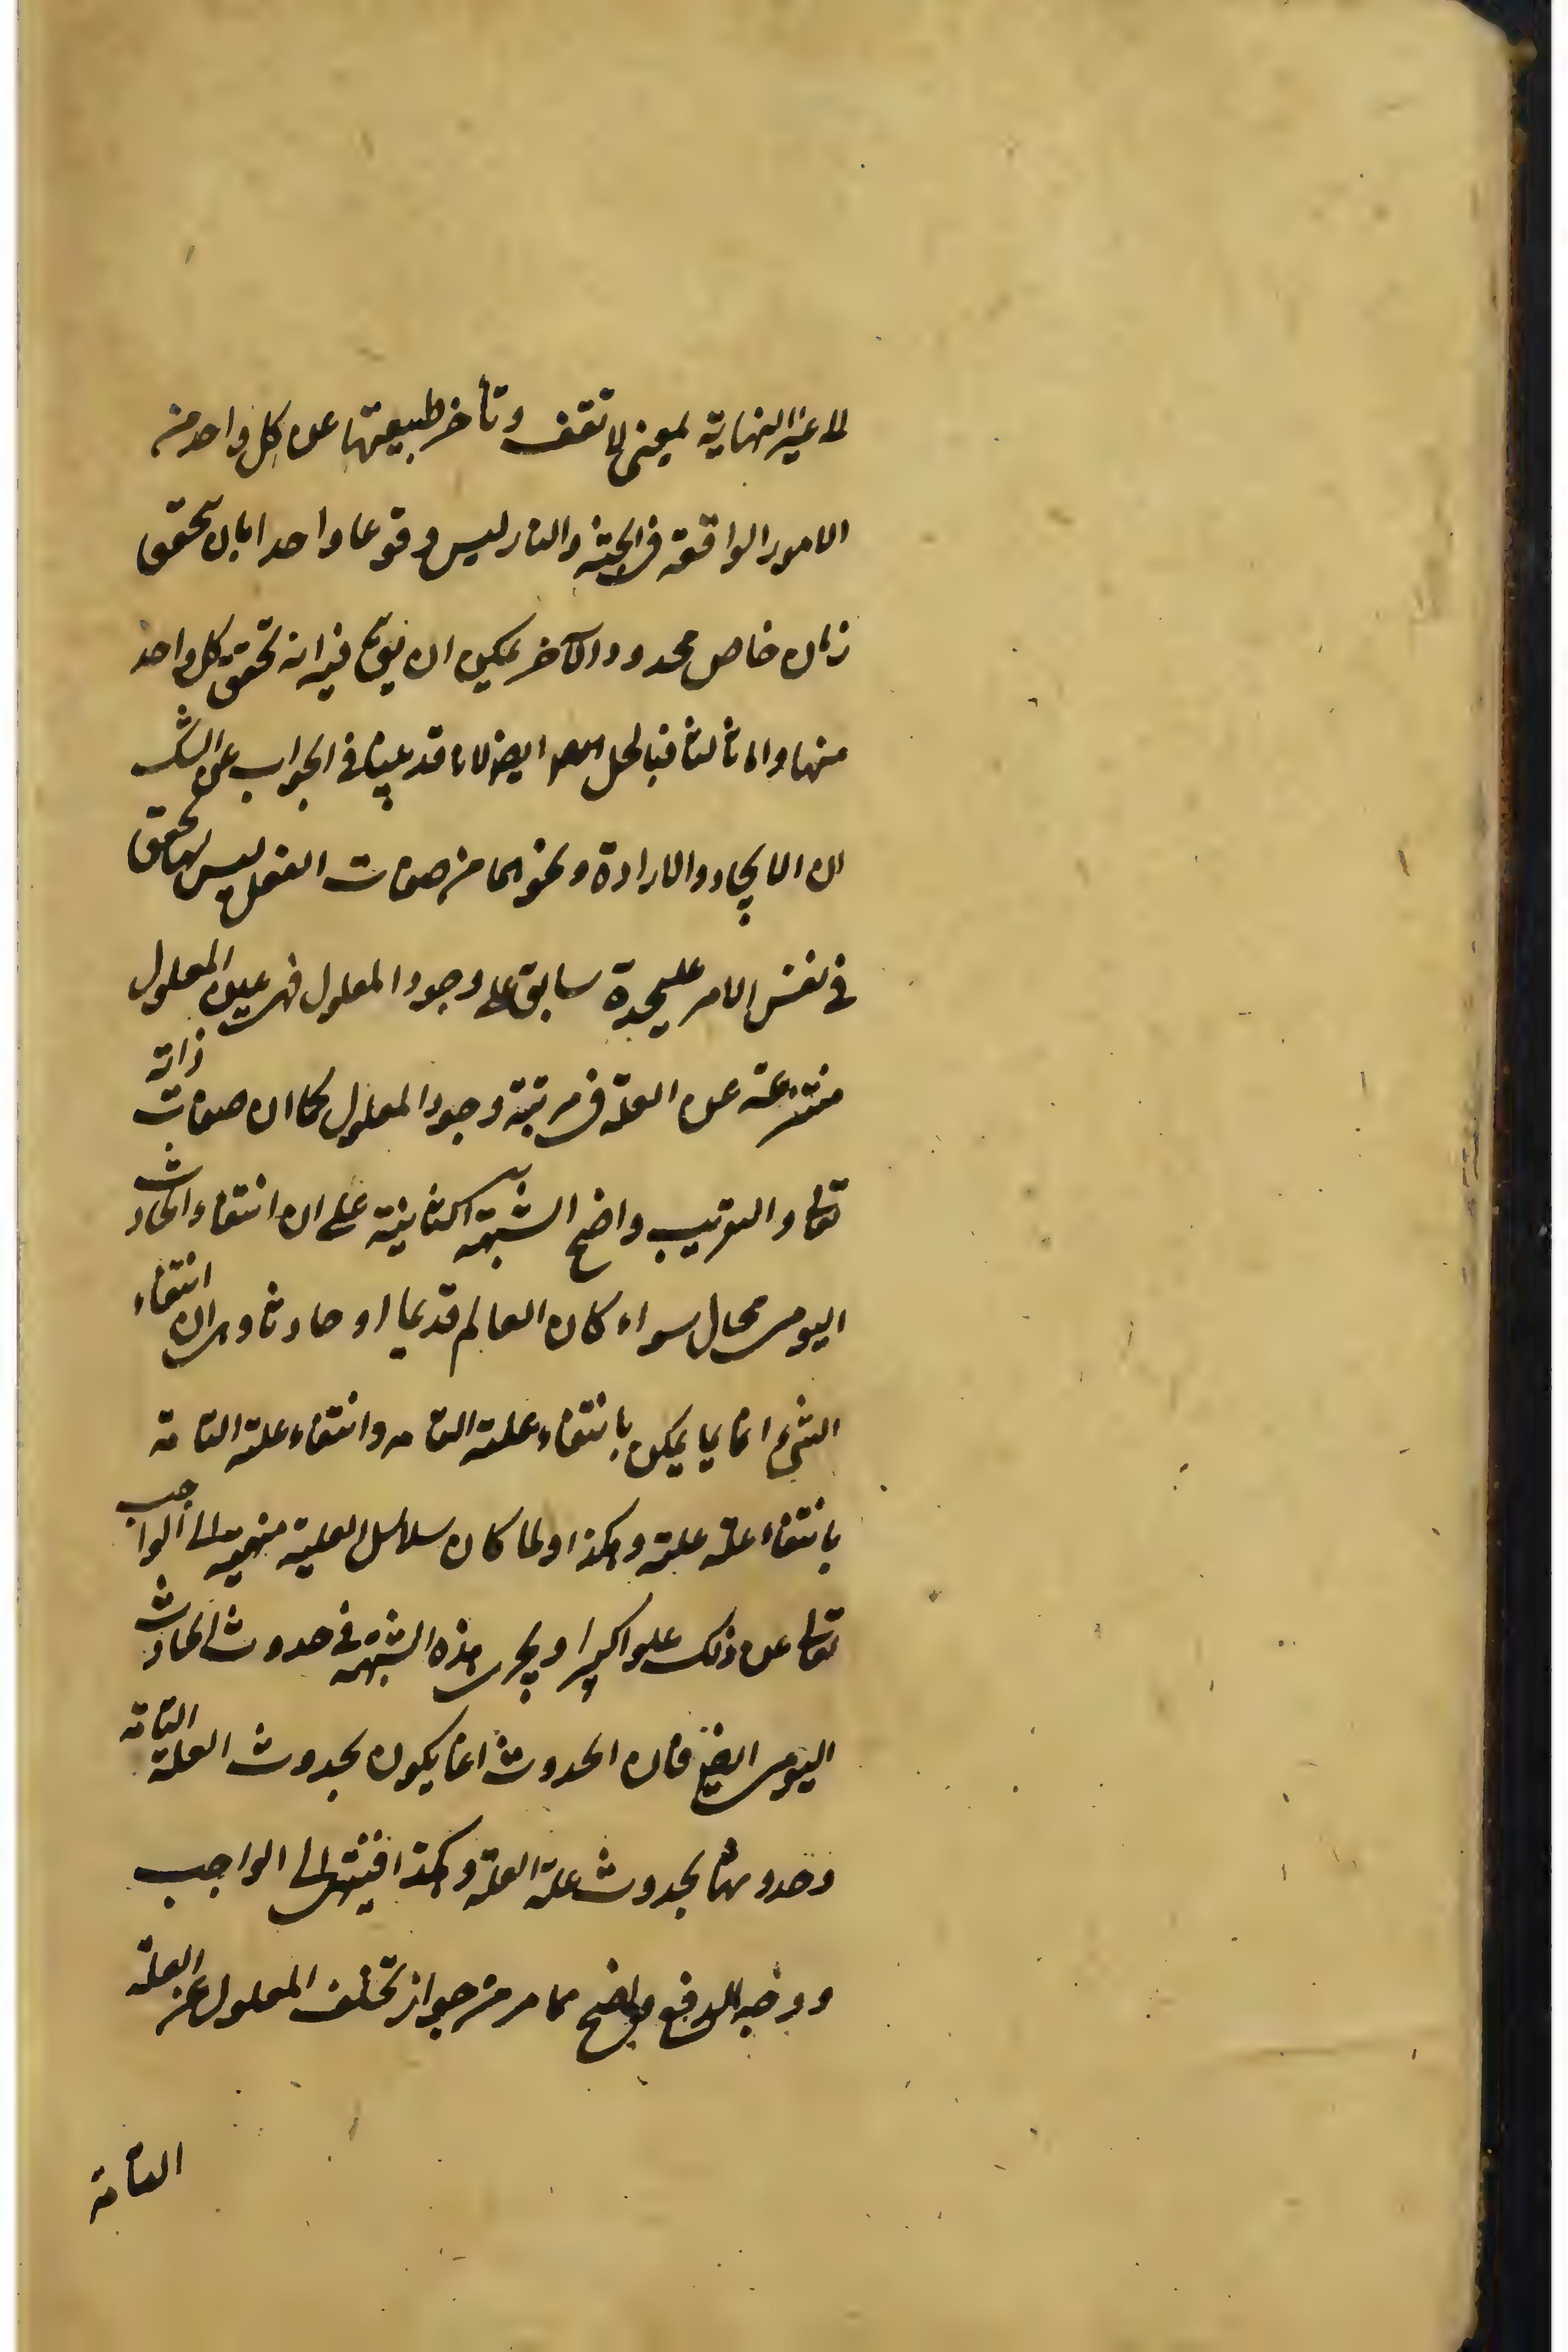 الى غير النهاية بمعنى لا تقف وتأخر طبيعتها عن كل واحد من
الامور الواقعة فى الجنة والنار ليس وقوعا واحدا بان تحقق
زمان خاص محدود والآخر يمكن ان يقع فيه انه تحقق كل واحد
منها واما ثالثا فبالحل ايضا لانا قد بينا فى الجواب عن الشك
ان الايجاد والارادة ونحوهما من صفات الفعل ليس لها تحقق
فى نفس الامر عليحدة سابق على وجود المعلول فهى عين المعلول
منتزعة عن العلة فى مرتبة وجود المعلول كما ان صفات ذاته
تعالى والتقريب واضح الشبهة الثانية على ان انتفاء الحادث
اليومى محال سواء كان العالم قديما او حادثا وهى ان انتفاء
الشىء انما يمكن بانتفاء علته التامة وانتفاء علته التامة
بانتفاء علة علته وهكذا ولما كان سلاسل العلية منتهية الى الواجب
تعالى عن ذلك علوا كبيرا ويجرى هذه الشبهة فى حدوث الحادث
اليومى ايضا فان الحدوث انما يكون بحدوث العلة التامة
وحدوثها بحدوث علة العلة وهكذا فينتهى الى الواجب
ووجه الدفع واضح مما مر من جواز تخلف المعلول عن العلة
التامة